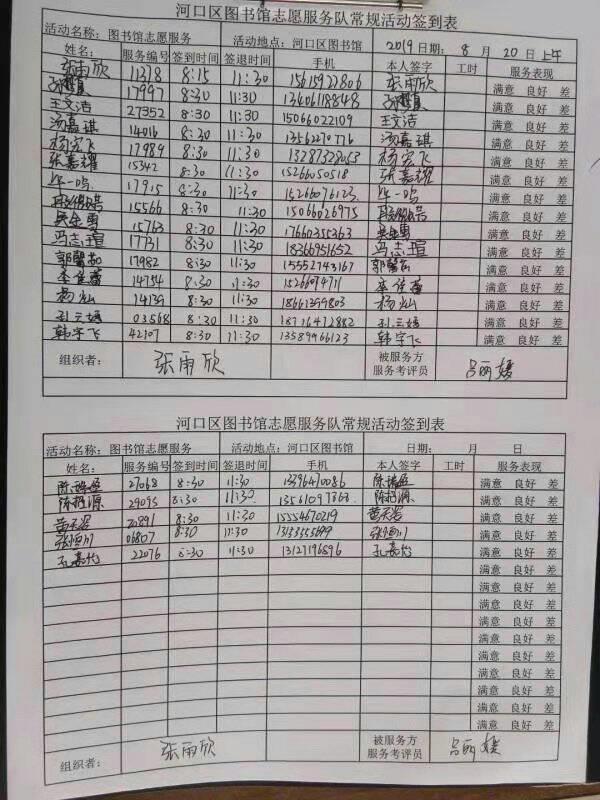 河口区图书馆志愿服务队常规活动签到表
活动名称：图书馆志愿服务 活动地点：河口区图书馆 2019 日期： 8 月 20 日 上午
姓名： 服务编号 签到时间 签退时间 手机 本人签字 工时 服务表现
张雨欣 11378 8:15 11:30 15615922806 张雨欣 满意 良好 差
17997 8:30 11:30 13406118848 满意 良好 差
王文洁 27352 8:30 11:30 15066022109 王文洁 满意 良好 差
汤嘉琪 14016 8:30 11:30 13562270776 汤嘉琪 满意 良好 差
杨宏飞 17989 8:30 11:30 13287328053 杨宏飞 满意 良好 差
张嘉耀 15342 8:30 11:30 15266050518 张嘉耀 满意 良好 差
毕一鸣 17915 8:30 11:30 15266076123 毕一鸣 满意 良好 差
15566 8:30 11:30 15066026975 满意 良好 差
15763 8:30 11:30 17660355363 满意 良好 差
冯志瑄 17731 8:30 11:30 18366951652 冯志瑄 满意 良好 差
郭馨茹 17982 8:30 11:30 15552743167 郭馨茹 满意 良好 差
李佳蓓 14754 8:30 11:30 15266074711 李佳蓓 满意 良好 差
杨灿 14139 8:30 11:30 18661359803 杨灿 满意 良好 差
孔云嫣 03568 8:30 11:30 18716472882 孔云嫣 满意 良好 差
韩宇飞 42107 8:30 11:30 13589966123 韩宇飞 满意 良好 差
组织者： 张雨欣 被服务方 服务考评员 吕丽媛
河口区图书馆志愿服务队常规活动签到表
活动名称：图书馆志愿服务 活动地点：河口区图书馆 日期： 月 日
姓名： 服务编号 签到时间 签退时间 手机 本人签字 工时 服务表现
27068 8:30 11:30 13396470086 满意 良好 差
29093 8:30 11:30 13561097868 满意 良好 差
20891 8:30 11:30 15554670219 满意 良好 差
张恒川 06807 8:30 11:30 13133355699 张恒川 满意 良好 差
孔嘉怡 22076 8:30 11:30 13127196896 孔嘉怡 满意 良好 差
满意 良好 差
满意 良好 差
满意 良好 差
满意 良好 差
满意 良好 差
满意 良好 差
满意 良好 差
满意 良好 差
满意 良好 差
满意 良好 差
组织者： 张雨欣 被服务方 服务考评员 吕丽媛